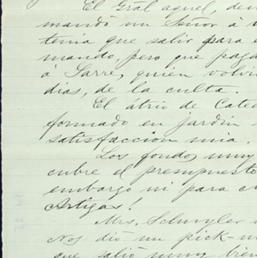 El Gral aquel, de
mandó un Señor á v
tenia que salir para e
mando, pero que paga
á Sarre, quien volvi
dias, de la culta.
El atrio de Cate
formado en jardin
satisfaccion mia.
Los fondos muy
cubre el presupuesto
embargo ni para c
Artigas!
Mrs. Schuyler
Nos dió un pick-n
que salio muy bien